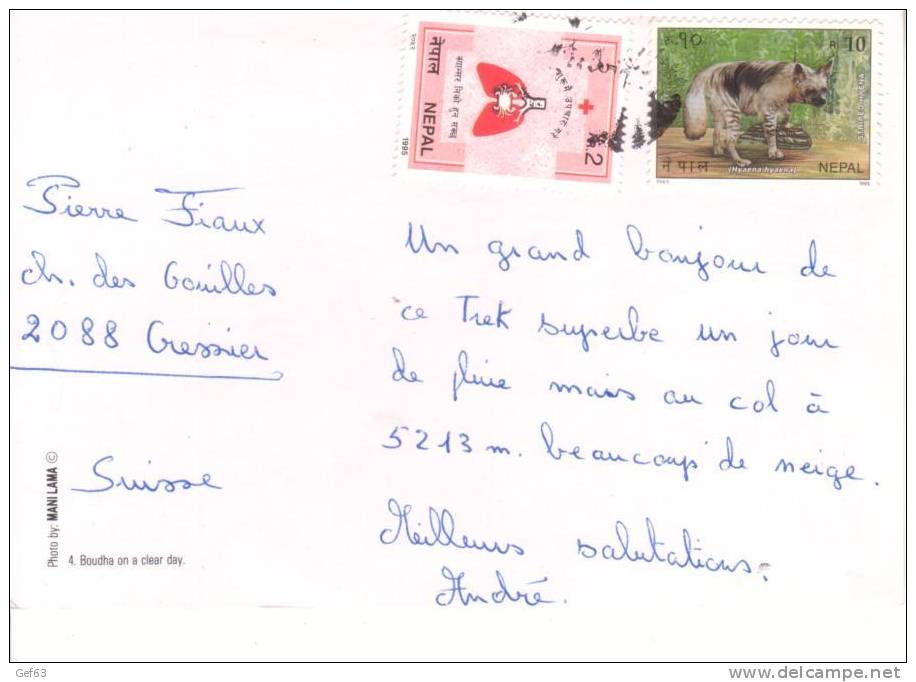 नेपाल
NEPAL
1995
रु.2
रु.१०
R.10
STRIPED HYAENA
नेपाल
(Hyaena hyaena)
NEPAL
Pierre Fiaux
ch. des Gouilles
2088 Cressier
Suisse
Un grand bonjour de
ce Trek superbe un jour
de pluie mais au col à
5213 m. beaucoup de neige.
Meilleurs salutations.
André.
Photo by: MANI LAMA ©
4. Boudha on a clear day.
Gef63
www.delcampe.net